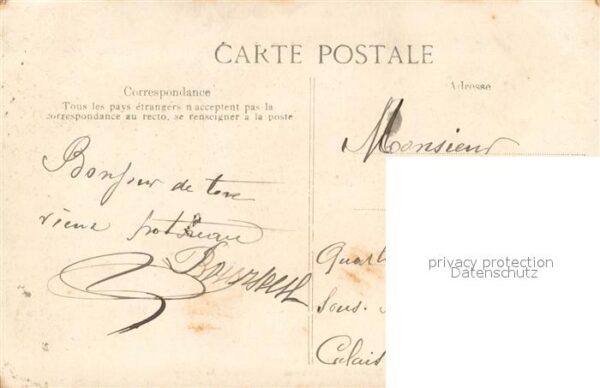 CARTE POSTALE
Correspondance
Tous les pays étrangers n'acceptent pas la
correspondance au recto, se renseigner à la poste
Adresse
Monsieur
Bonjour de ton
vieux
Quart
sous.
Calais
privacy protection
Datenschutz